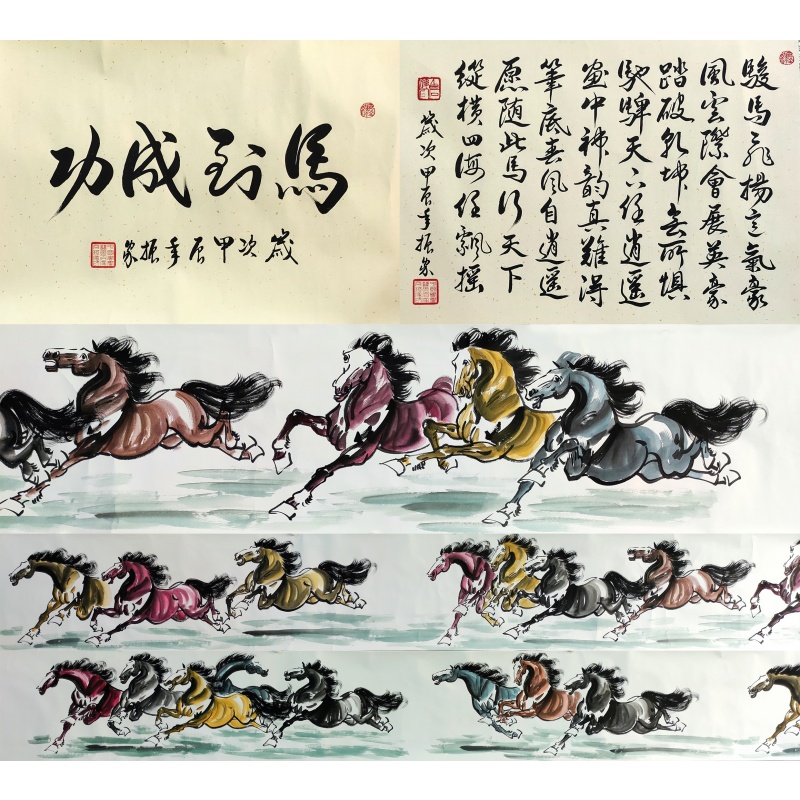 馬到成功
歲次甲辰年振
駿馬飛揚意氣豪
風雲際會展英豪
踏破乾坤無所懼
馳騁天下任逍遥
畫中神韵真難得
筆底春风自逍遥
愿随此馬行天下
縱横四海任飄摇
歲次甲辰年振